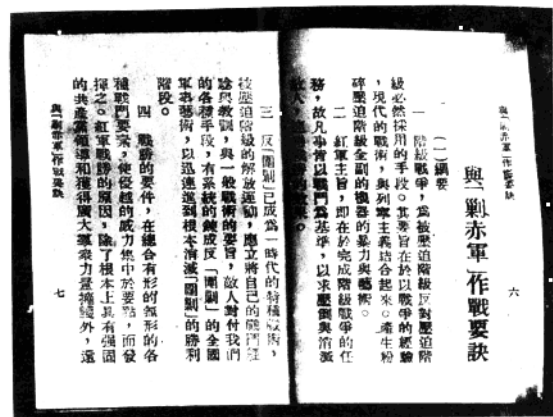 與「剿赤軍」作戰要訣
六
與「剿赤軍」作戰要訣
(一)綱要
一 階級戰爭，爲被壓迫階級反對壓迫階
級必然採用的手段。其要旨在於以戰爭的經驗
，現代的戰術，與列寧主義結合起來。產生粉
碎壓迫階級全副的機器的暴力與藝術。
二 紅軍主旨，即在於完成階級戰爭的任
務，故凡學術以戰鬥爲基準，以求壓倒與消滅
敵人，
三 反「圍剿」已成爲一時代的特種戰術，
被壓迫階級的解放運動，應立將自己的戰鬥經
驗與教訓，與一般戰術的要旨，敵人對付我們
的各種手段，有系統的鍊成反「圍剿」的全國
軍事藝術，以迅速達到根本消滅「圍剿」的勝利
階段。
四 戰勝的要件，在總合有形的無形的各
種戰鬥要素，使優越的威力集中於要點，而發
揮之。紅軍戰勝的原因，除了根本上具有强固
的共產黨領導和獲得廣大羣衆力量擁護外，還
與「剿赤軍」作戰要訣
七